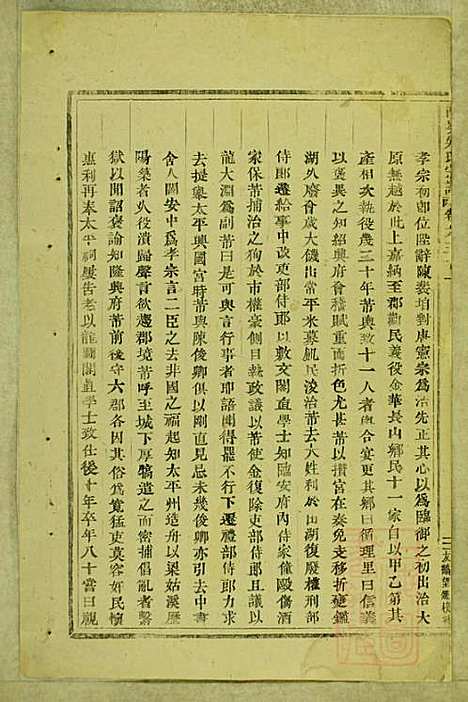 孝宗初卽位陛辭陳裴垍對唐憲宗爲治先正其心以爲臨御之初出治大
原無越於此上嘉納至郡勸民義役金華長山鄉民十一家自以甲乙第其
產相次執役幾三十年芾輿致十一人者與合宴更其鄉曰循理里曰信義
以褒異之知紹興府會稽賦重而折色尤甚芾以攢宮在奏免支移折變鑑
湖久廢會歲大饑出常平米募飢民浚治芾去大姓利於田湖復廢權刑部
侍郎遷給事中改吏部侍郎以敷文閣直學士知臨安府內侍家僮毆傷酒
家保芾捕治之狗於市權豪側目執政議以芾使金復除吏部侍郎且議以
龍大淵爲副芾曰是可與言行事者耶語聞得罷不行下遷禮部侍郎力求
去提舉太平興國宮時芾與陳俊卿俱以剛直見忌未幾俊卿亦引去中書
舍人閻安中爲孝宗言二臣之去非國之福起知太平州造舟以梁姑溪歷
陽築者久役潰歸聲言欲趨郡境芾呼至城下厚犒遣之而密捕倡亂者繫
獄以聞詔褒諭知隆興府芾前後守六郡各因其俗爲寬猛吏莫容奸民懷
惠利再奉太平祠屢告老以龍圖閣直學士致仕後十年卒年八十嘗曰視